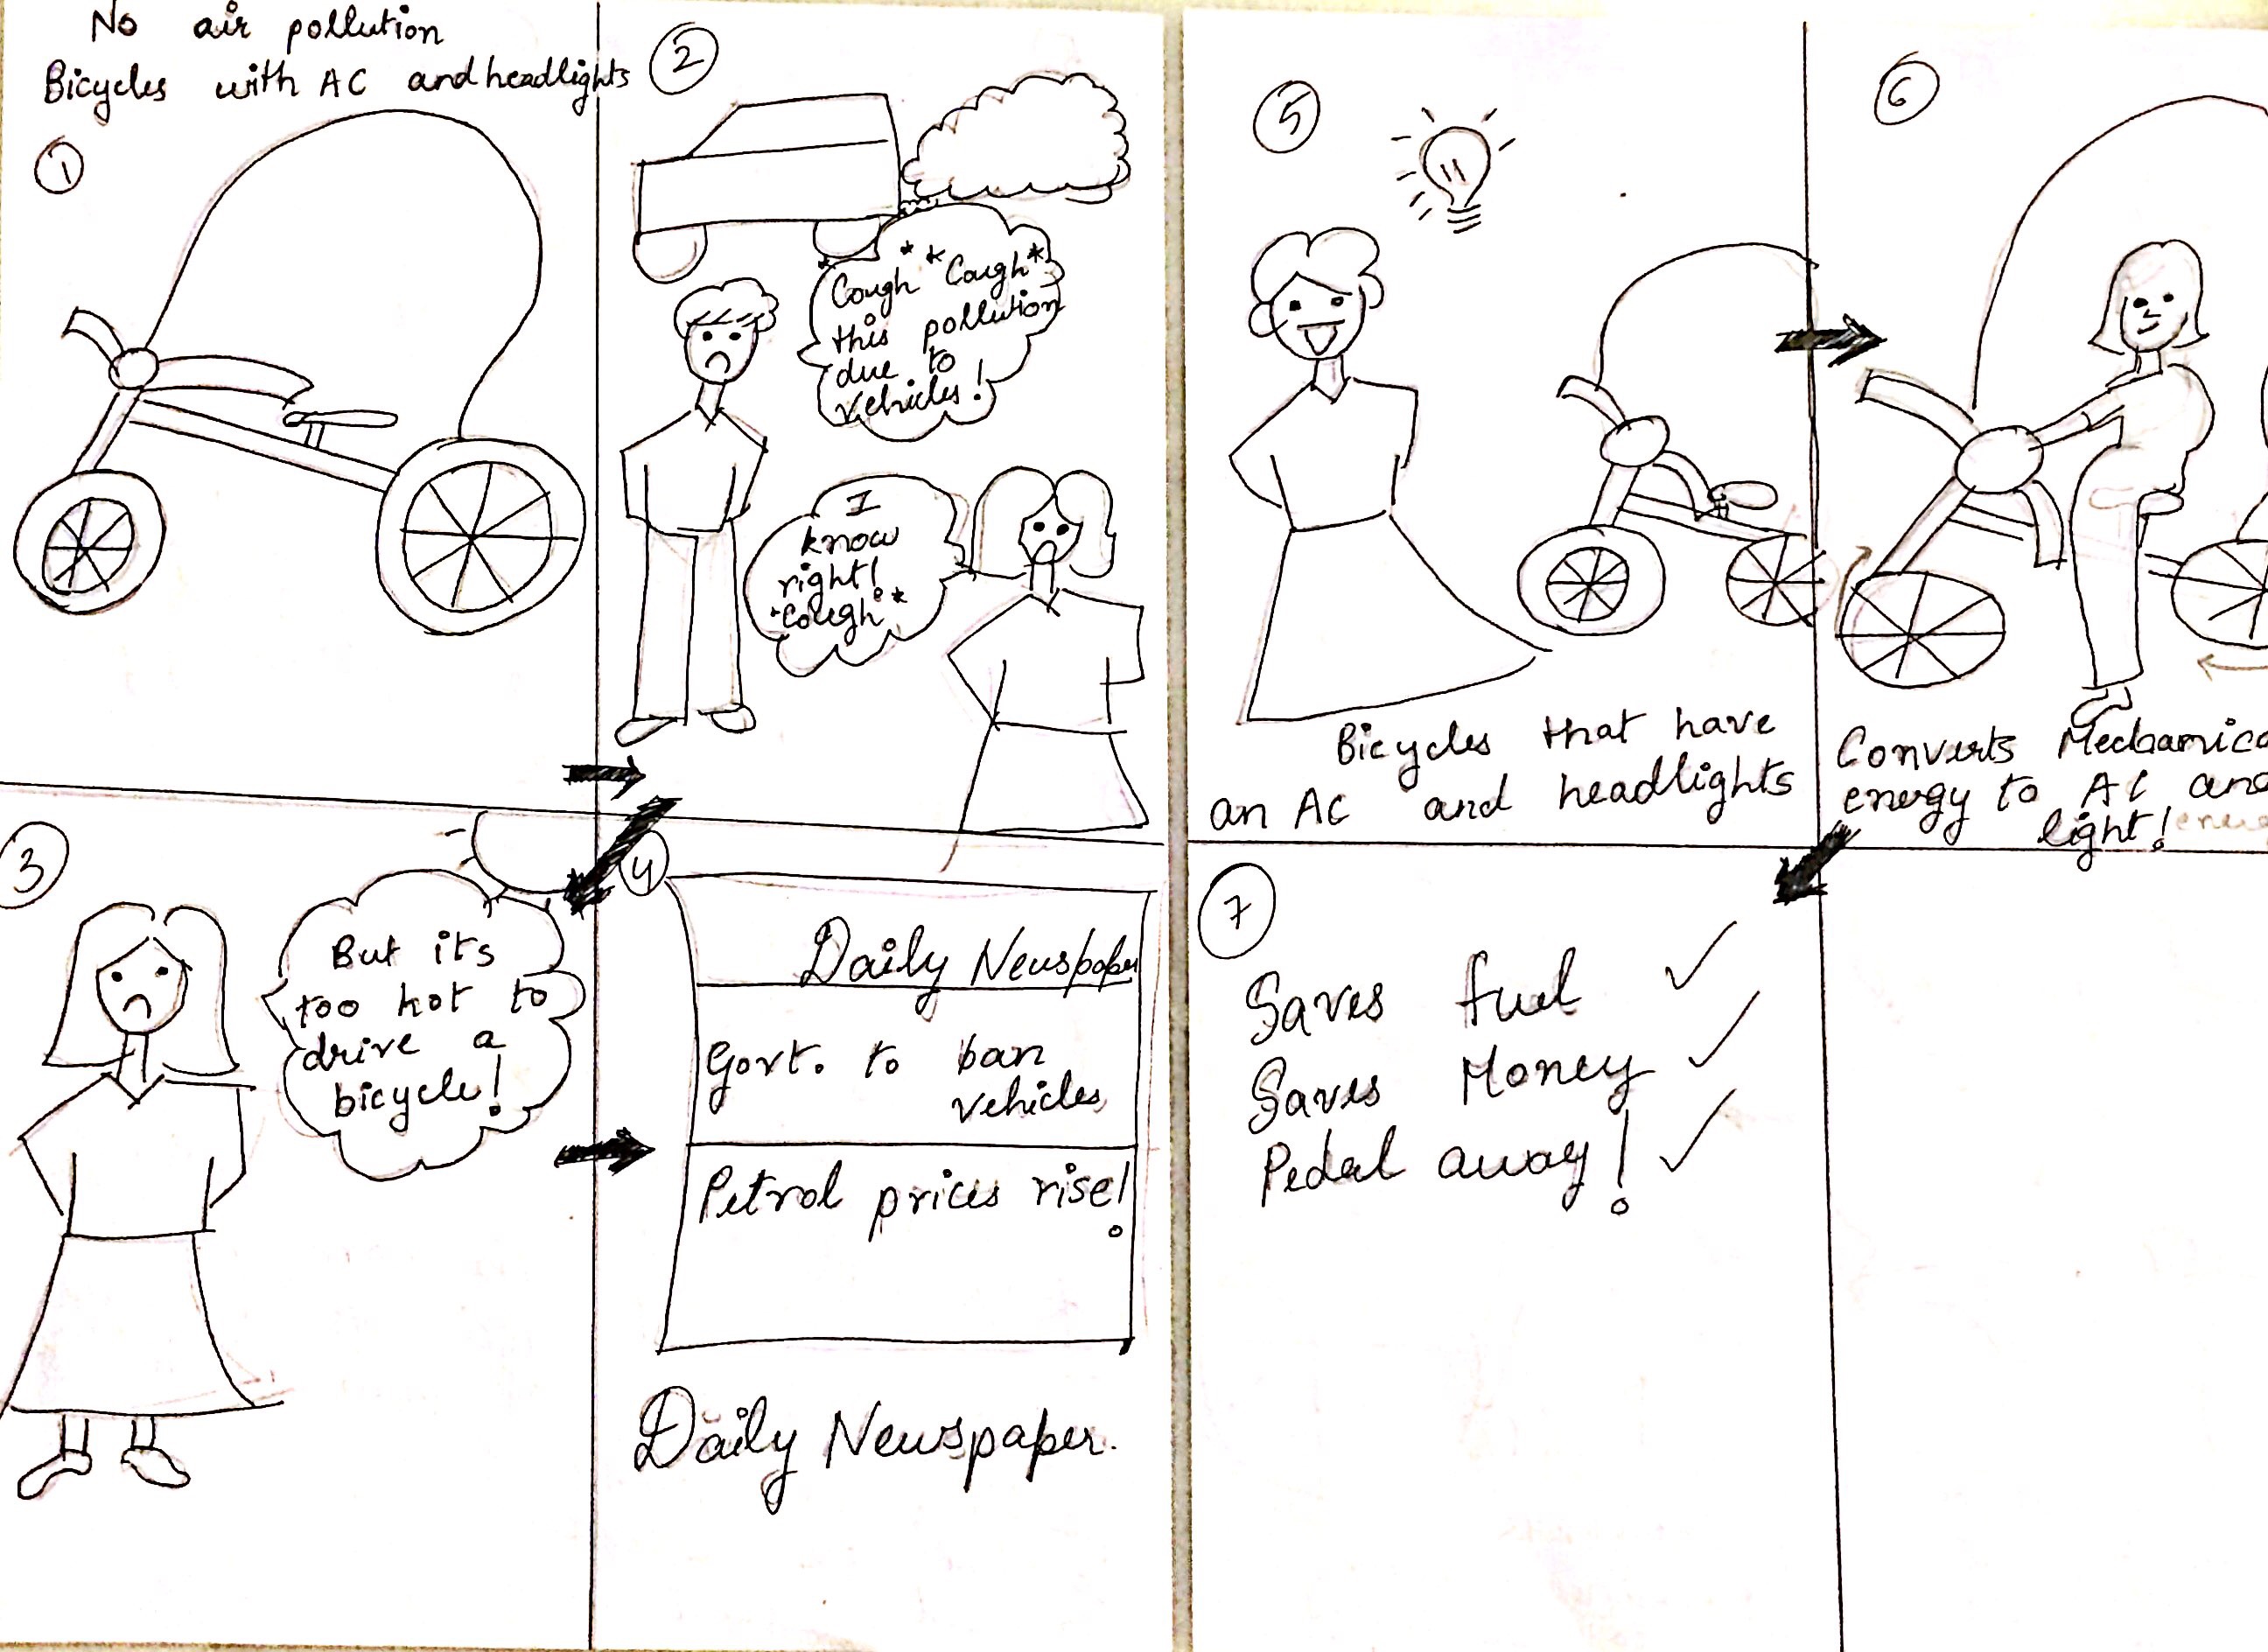 No air pollution
Bicycles with AC and headlights
1
2
*Cough* *Cough*
this pollution
due to
vehicles!
I
know
right!
*Cough*
3
But its
too hot to
drive a
bicycle!
4
Daily Newspaper
Govt. to ban
vehicles
Petrol prices rise!
Daily Newspaper.
5
Bicycles that have
an AC and headlights
6
Converts Mechanica
energy to AC and
light!
7
Saves fuel ✓
Saves Money ✓
Pedal away! ✓